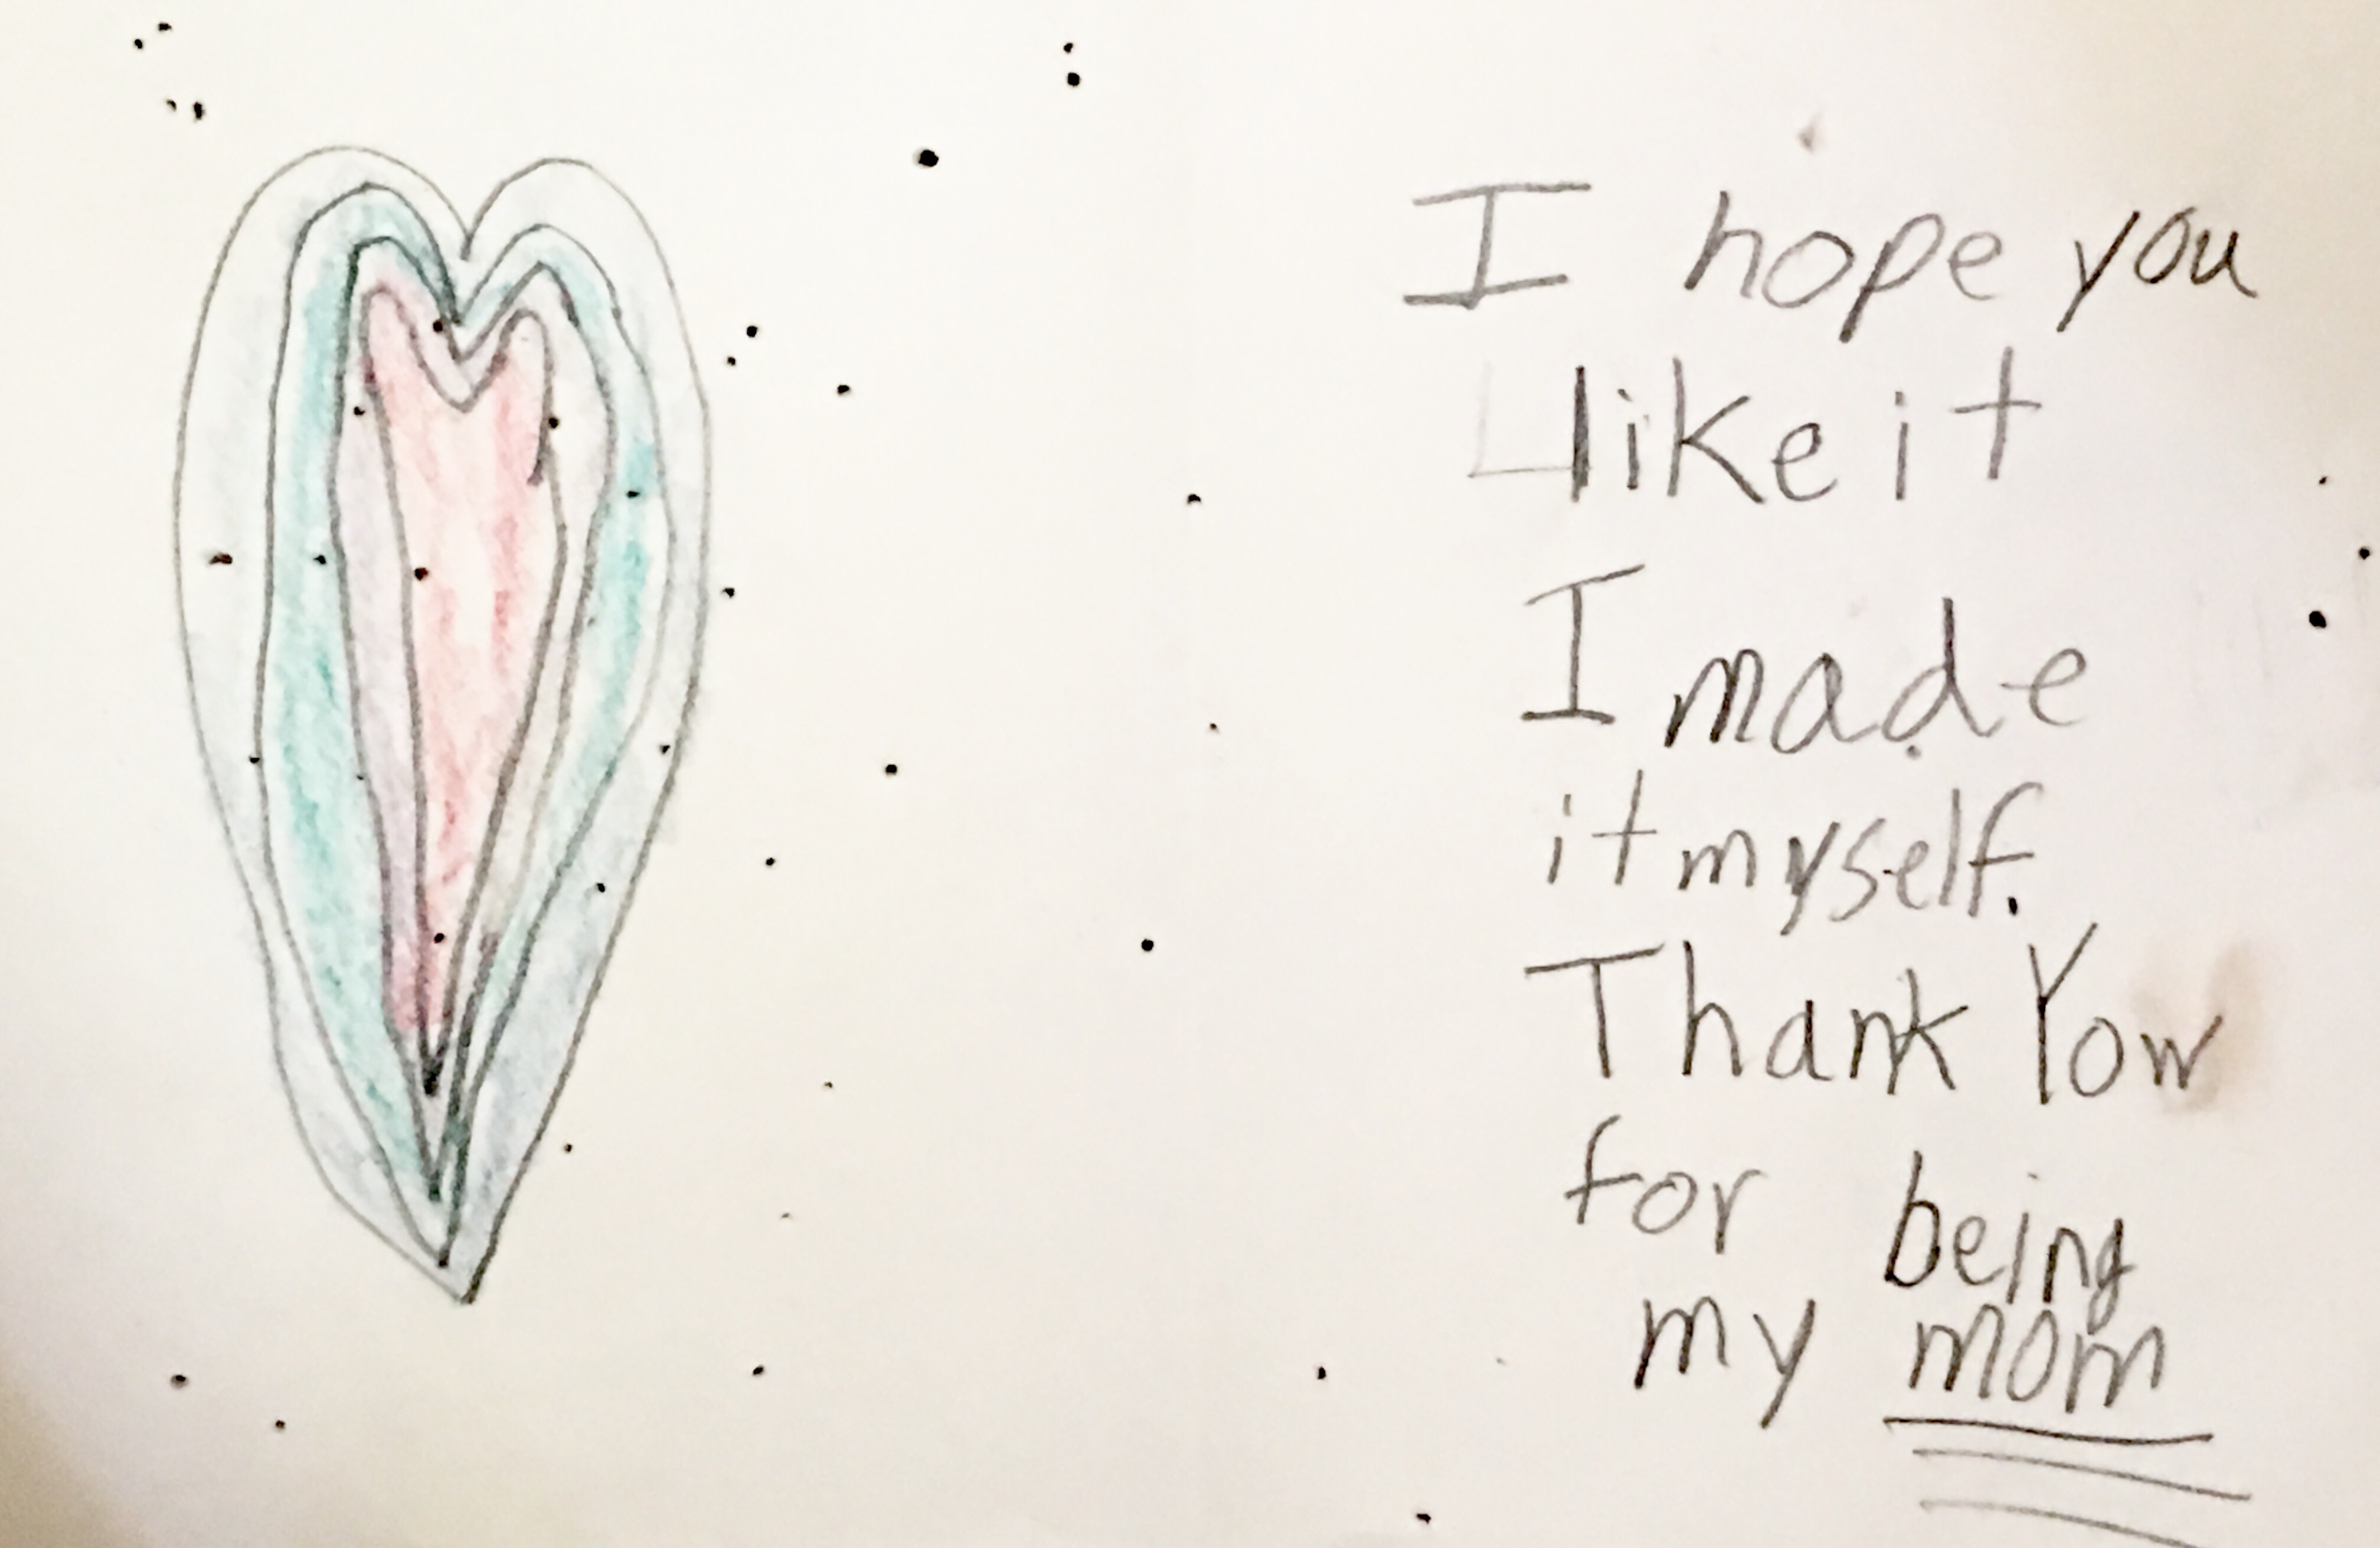 I hope you
like it
I made
it myself.
Thank You
for being
my mom